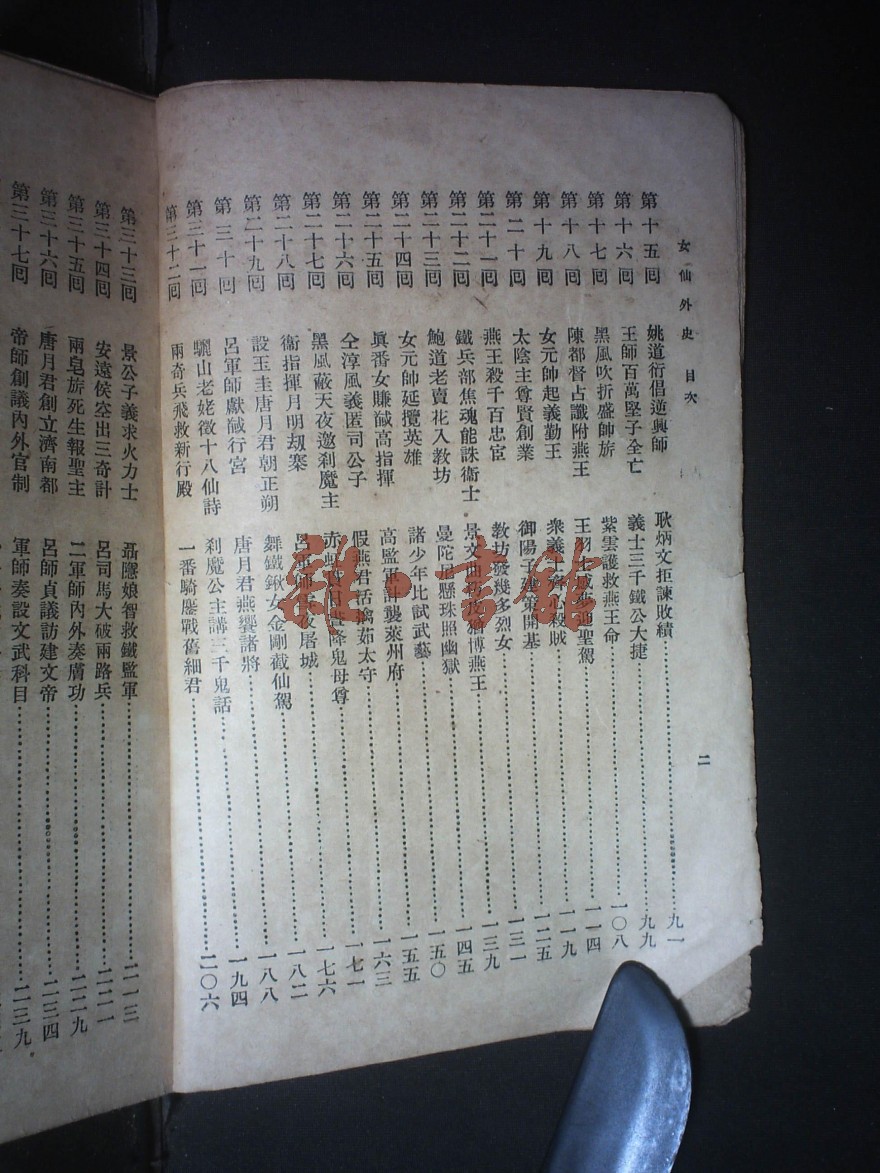 女仙外史 目次
二
第十五囘 姚道衍倡逆興師 耿炳文拒諫敗績 九一
第十六囘 王師百萬堅子全亡 義士三千鐵公大捷 九九
第十七囘 黑風吹折盛帥旂 紫雲護救燕王命 一〇八
第十八囘 陳都督占讖附燕王 王 聖駕 一一四
第十九囘 女元帥起義勤王 衆義士齊心殺賊 一一九
第二十囘 太陰主尊賢創業 御陽子建策開基 一二五
第二十一囘 燕王殺千百忠宦 教坊發幾多烈女 一三一
第二十二囘 鐵兵部焦魂能誅衞士 景文曲 燕王 一三九
第二十三囘 鮑道老賣花入教坊 曼陀尼懸珠照幽獄 一四五
第二十四囘 女元帥延攬英雄 諸少年比試武藝 一五〇
第二十五囘 眞番女賺馘高指揮 高監軍計襲萊州府 一五五
第二十六囘 仝淳風義匿司公子 假燕君活擒茹太守 一六三
第二十七囘 黑風蔽天夜邀剎魔主 赤 降鬼母尊 一七一
第二十八囘 衞指揮月明劫寨 呂軍師 夜屠城 一七六
第二十九囘 設玉圭唐月君朝正朔 舞鐵鍬女金剛截仙駕 一八二
第三十囘 呂軍師獻馘行宮 唐月君燕饗諸將 一八八
第三十一囘 驪山老姥徵十八仙詩 刹魔公主講三千鬼話 一九四
第三十二囘 兩奇兵飛救新行殿 一番騎鏖戰舊細君 二〇六
第三十三囘 景公子義求火力士 聶隱娘智救鐵監軍 二一三
第三十四囘 安遠侯空出三奇計 呂司馬大破兩路兵 二二一
第三十五囘 兩皂旂死生報聖主 二軍師內外奏膚功 二二九
第三十六囘 唐月君創立濟南都 呂師貞議訪建文帝 二三四
第三十七囘 帝師創議內外官制 軍師奏設文武科目 二三九